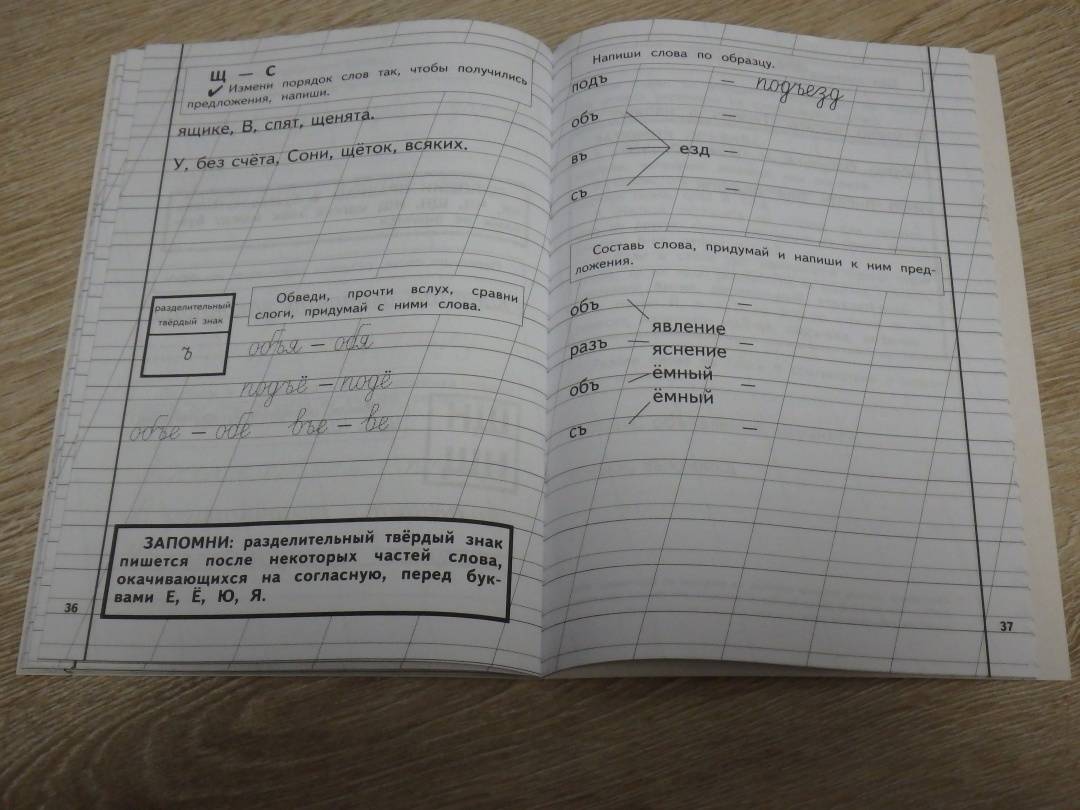 Щ — С
✔ Измени порядок слов так, чтобы получились
предложения, напиши.
ящике, В, спят, щенята.
У, без счёта, Сони, щёток, всяких.
разделительный
твёрдый знак
ъ
Обведи, прочти вслух, сравни
слоги, придумай с ними слова.
объя — обя
подъё — подё
объе — обе въе — ве
ЗАПОМНИ: разделительный твёрдый знак
пишется после некоторых частей слова,
окачивающихся на согласную, перед бук-
вами Е, Ё, Ю, Я.
36
Напиши слова по образцу.
подъ — подъезд
объ —
въ езд —
съ —
Составь слова, придумай и напиши к ним пред-
ложения.
объ —
явление
разъ —
яснение
ёмный
объ —
ёмный
съ —
37